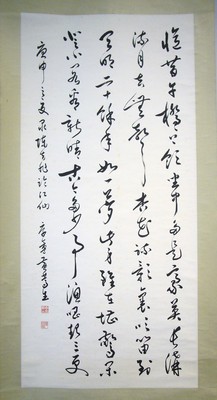 憶昔午橋橋上飲坐中多是豪英長溝
流月去無聲杏花疏影裏吹笛到
天明二十餘年如一夢此身雖在堪驚閒
登小閣看新晴古今多少事漁唱起三更
庚申之夏录陳臨江仙